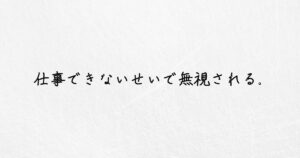 仕事できないせいで無視される。